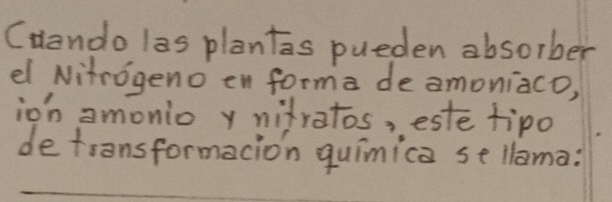 Cuando las plantas pueden absorber
el Nitrógeno en forma de amoníaco,
ión amonio y nitratos, este tipo
de transformación química se llama: